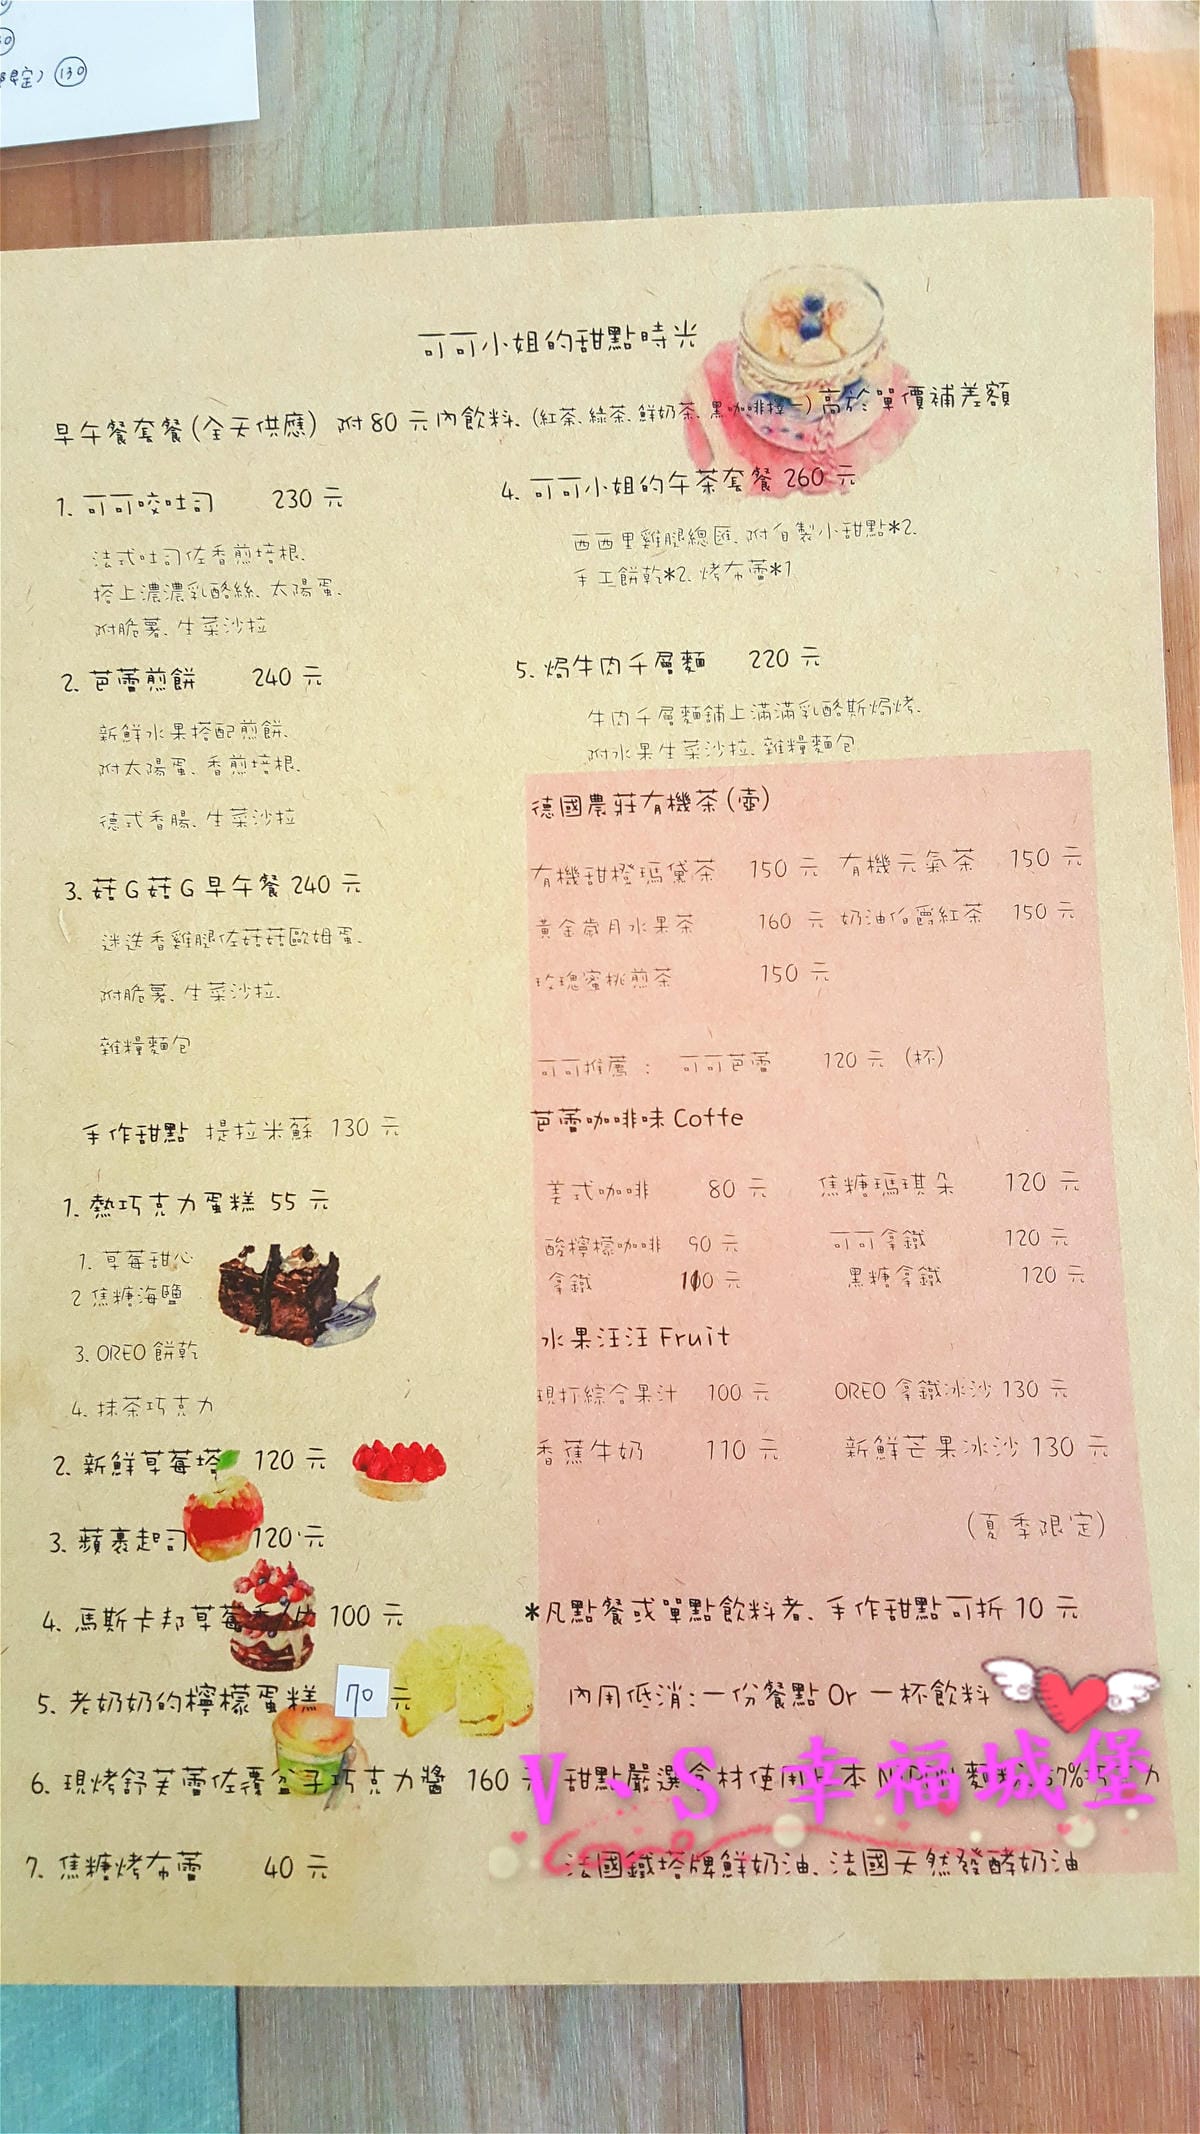 限定) 130
可可小姐的甜點時光
早午餐套餐(全天供應) 附80元內飲料、(紅茶、綠茶、鮮奶茶、黑咖啡擇一)高於單價補差額
1. 可可咬吐司 230 元
法式吐司佐香煎培根、
搭上濃濃乳酪絲、太陽蛋、
附脆薯、生菜沙拉
2. 芭蕾煎餅 240 元
新鮮水果搭配煎餅、
附太陽蛋、香煎培根、
德式香腸、生菜沙拉
3. 菇G菇G早午餐 240 元
迷迭香雞腿佐菇菇歐姆蛋、
附脆薯、生菜沙拉、
雜糧麵包
4. 可可小姐的午茶套餐 260 元
西西里雞腿總匯、附自製小甜點*2、
手工餅乾*2、烤布蕾*1
5. 焗牛肉千層麵 220 元
牛肉千層麵鋪上滿滿乳酪斯焗烤、
附水果生菜沙拉、雜糧麵包
手作甜點 提拉米蘇 130 元
1. 熱巧克力蛋糕 55 元
1. 草莓甜心
2 焦糖海鹽
3. OREO 餅乾
4. 抹茶巧克力
2. 新鮮草莓塔 120 元
3. 蘋裹起司 120 元
4. 馬斯卡邦草莓 100 元
5. 老奶奶的檸檬蛋糕 70 元
6. 現烤舒芙蕾佐覆盆子巧克力醬 160 元
7. 焦糖烤布蕾 40 元
德國農莊有機茶(壺)
有機甜橙瑪黛茶 150 元 有機元氣茶 150 元
黃金歲月水果茶 160 元 奶油伯爵紅茶 150 元
玫瑰蜜桃煎茶 150 元
可可推薦 : 可可芭蕾 120 元 (杯)
芭蕾咖啡味 Coffe
美式咖啡 80 元 焦糖瑪琪朵 120 元
酸檸檬咖啡 90 元 可可拿鐵 120 元
拿鐵 110 元 黑糖拿鐵 120 元
水果汪汪 Fruit
現打綜合果汁 100 元 OREO 拿鐵冰沙 130 元
香蕉牛奶 110 元 新鮮芒果冰沙 130 元
(夏季限定)
*凡點餐或單點飲料者、手作甜點可折 10 元
內用低消:一份餐點 Or 一杯飲料
甜點嚴選食材使用日本
法國鐵塔牌鮮奶油、法國天然發酵奶油
V、S 幸福城堡